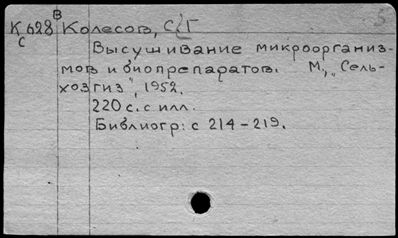 В
К 628 Колесов, С Г
С
Высушивание микроорганиз-
мов и биопрепаратов. М., „Сель-
хозгиз", 1952.
220 с. с илл.
Библиогр: с 214-219.